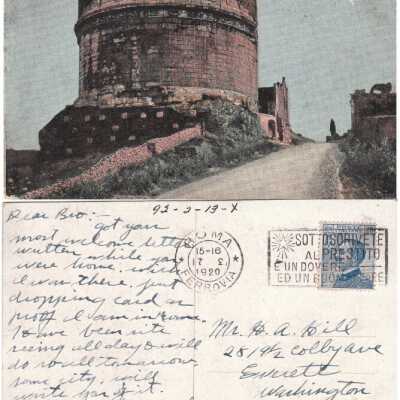 92-2-13-X
Dear Bro:-
got your
most welcome letter
written while you
were home, while
I was there, just
dropping card as
proof I am in Rome.
Have been site
seeing all day & will
do so till to-morrow
some city, will
write
ROMA
15-16
17 2
1920
FERROVIA
SOTTOSCRIVETE
AL PRESTITO
E UN DOVERE
ED UN BUON AFFARE
Mr. H. A. Hill
2819½ Colby ave
Everett
Washington